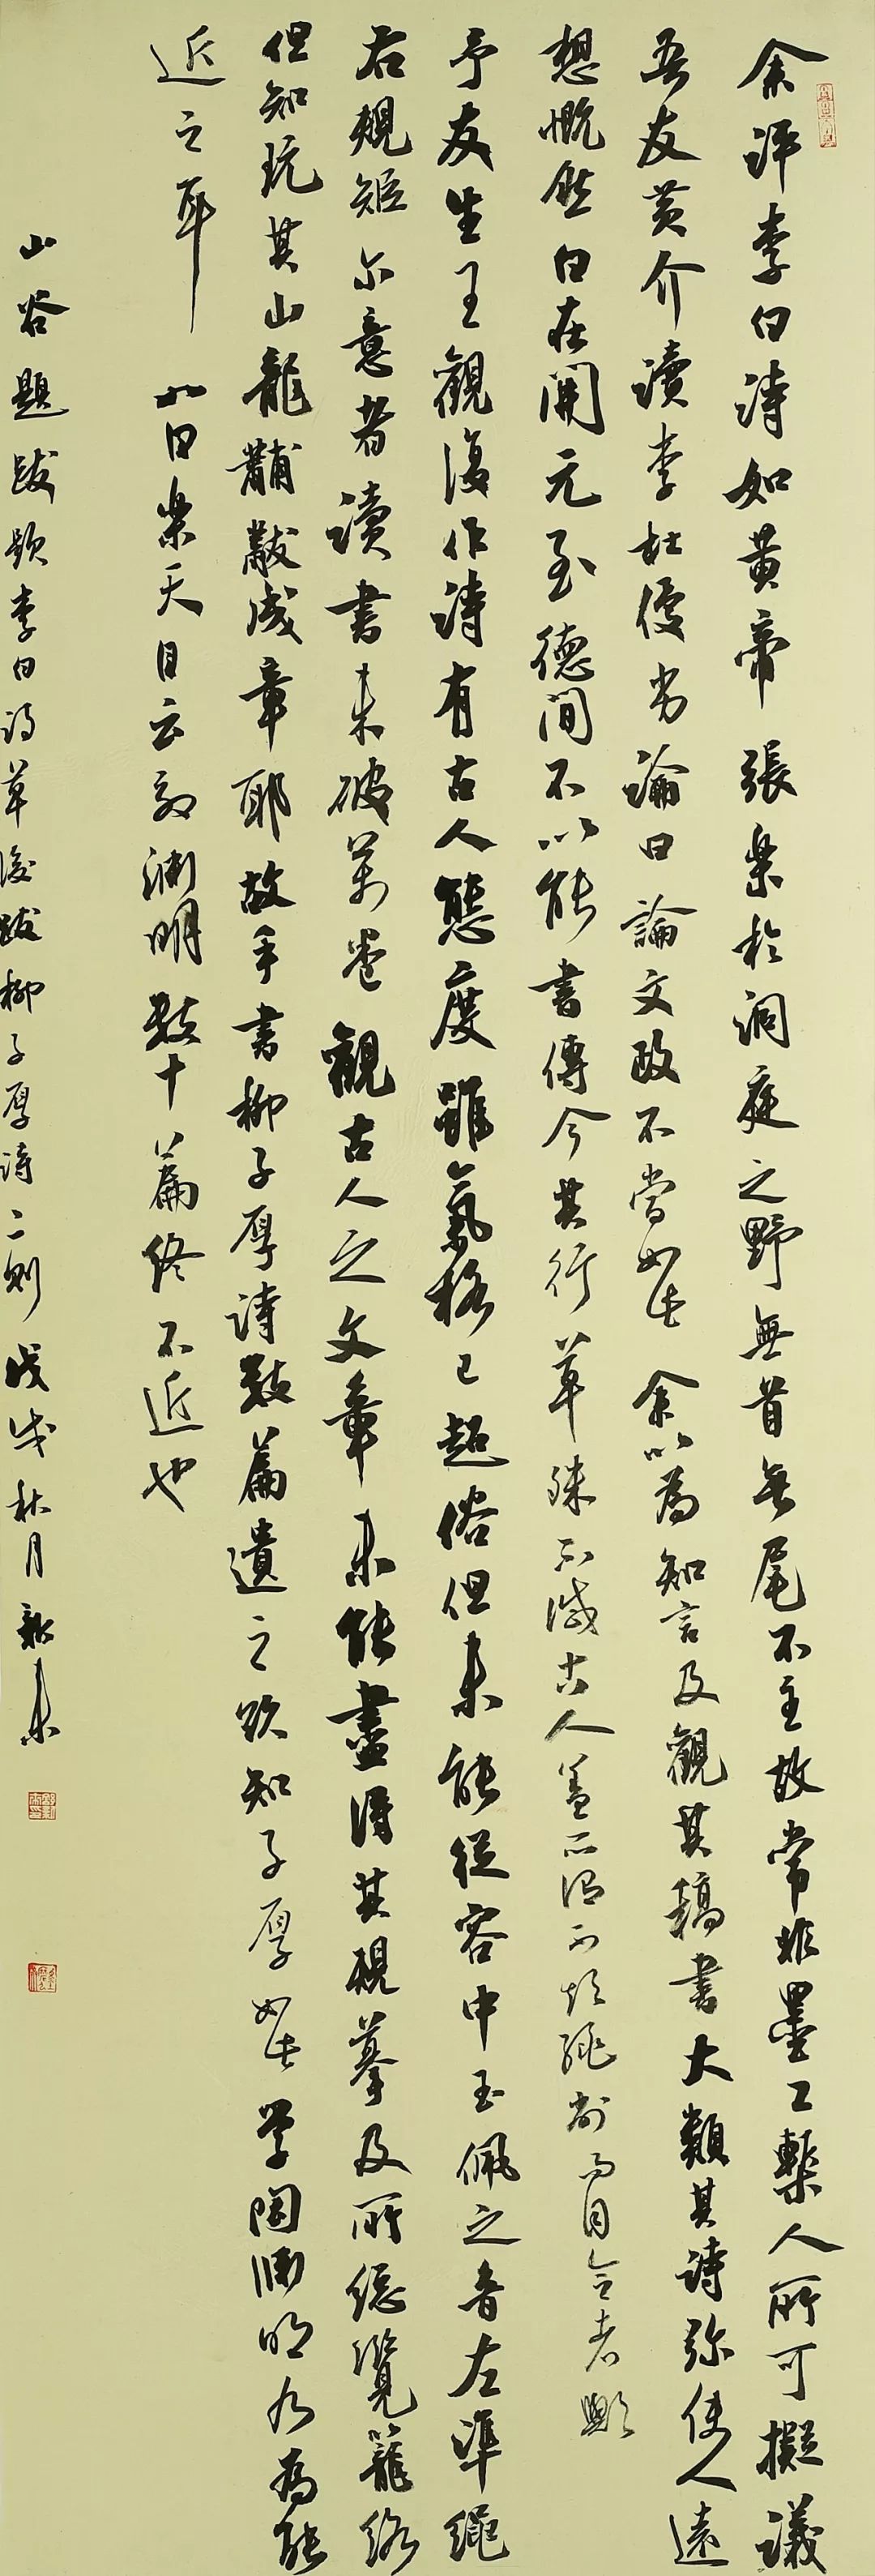 余评李白诗如黄帝張樂於洞庭之野無首無尾不主故常非墨工槧人所可擬議
吾友黄介讀李杜優劣論曰論文政不當如此余以為知言及觀其稿書大類其詩弥使人遠
想慨然白在開元至德間不以能書傳今其行草殊不減古人蓋所謂不煩繩削而自合者歟
予友生王觀復作詩有古人態度雖氣格已超俗但未能從容中玉佩之音左準繩
右規矩尔意者讀書未破萬卷觀古人之文章未能盡得其規摹及所總覽籠絡
但知玩其山龍黼黻成章耶故手書柳子厚詩數篇遺之欲知子厚如此学陶渊明乃為能
近之耳如白樂天自云效渊明數十篇終不近也
山谷題跋题李白诗草後跋柳子厚詩二则戊戌秋月新来